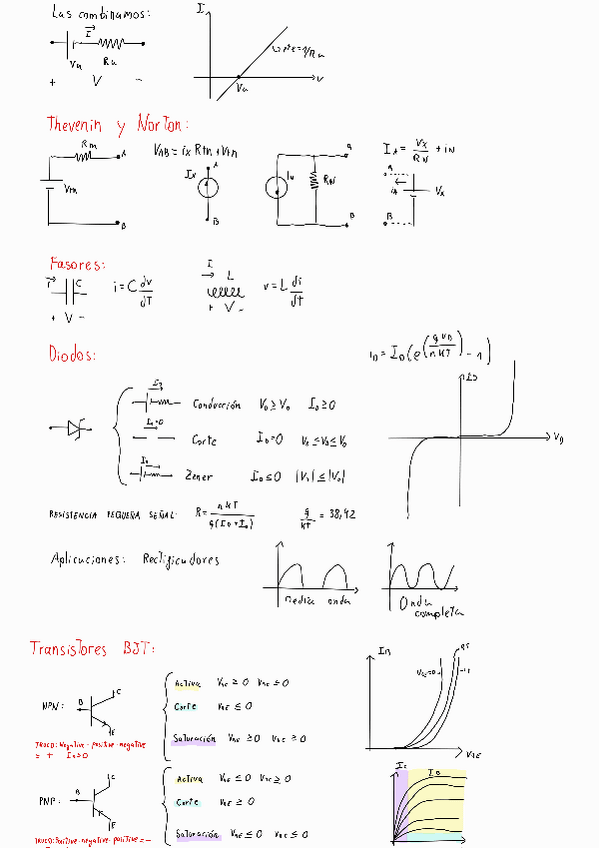 Las combinamos:
I
I
Vu Ru
+ V -
Vu
V
Thevenin y Norton:
Rth
A
Vth
B
VAB = ix Rth + Vth
Ix
A
B
IN
RN
A
B
IA = Vx/RN + iN
A
B
iA
Vx
Fasores:
i C
+ V -
i = C dv/dT
I
L
+ V -
v = L di/dt
Diodos:
iD = Io(e^(q VD/n KT) - 1)
ID
VD
Conducción
Corte ID=0
Zener
RESISTENCIA PEQUEÑA SEÑAL: R = n KT/q(ID+Io) q/KT = 38,92
Aplicaciones: Rectificadores
media onda
Onda completa
Transistores BJT:
NPN: B C E
TRUCO: Negative-positive-negative
= +
Activa VBE ≥ 0
Corte VBE ≤ 0
Saturación VBE ≥ 0
IB
VBE
PNP: B C E
TRUCO: Positive-negative-positive = -
Activa VBE ≤ 0
Corte VBE ≥ 0
Saturación VBE ≤ 0
IC
IB